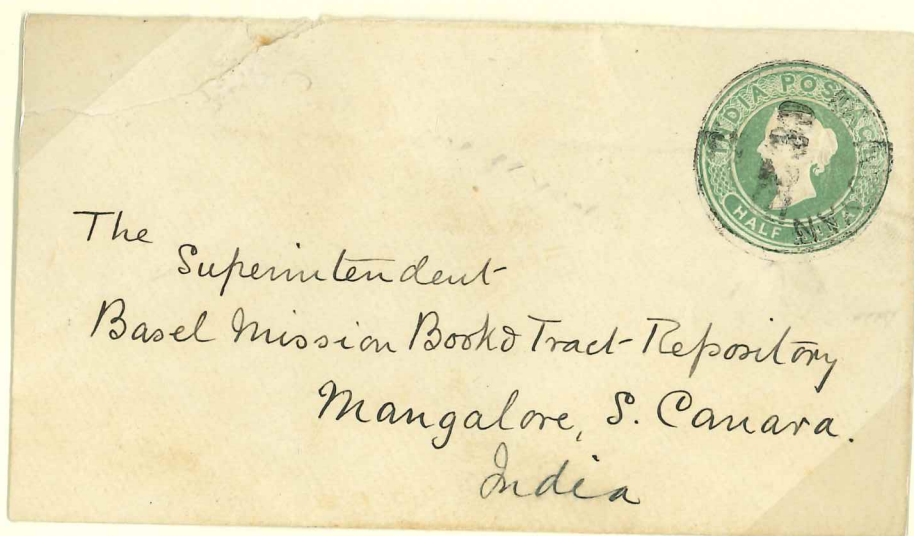 INDIA POSTAGE
HALF ANNA
The
Superintendent
Basel Mission Book & Tract Repository
Mangalore, S. Canara.
India